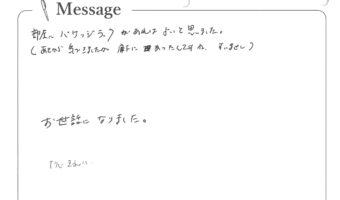 Message
部屋に バゲッジラック があれば よいと 思いました。
(あとから 気づきましたが 廊下に 置あったんですね、すいません)
お世話に なりました。